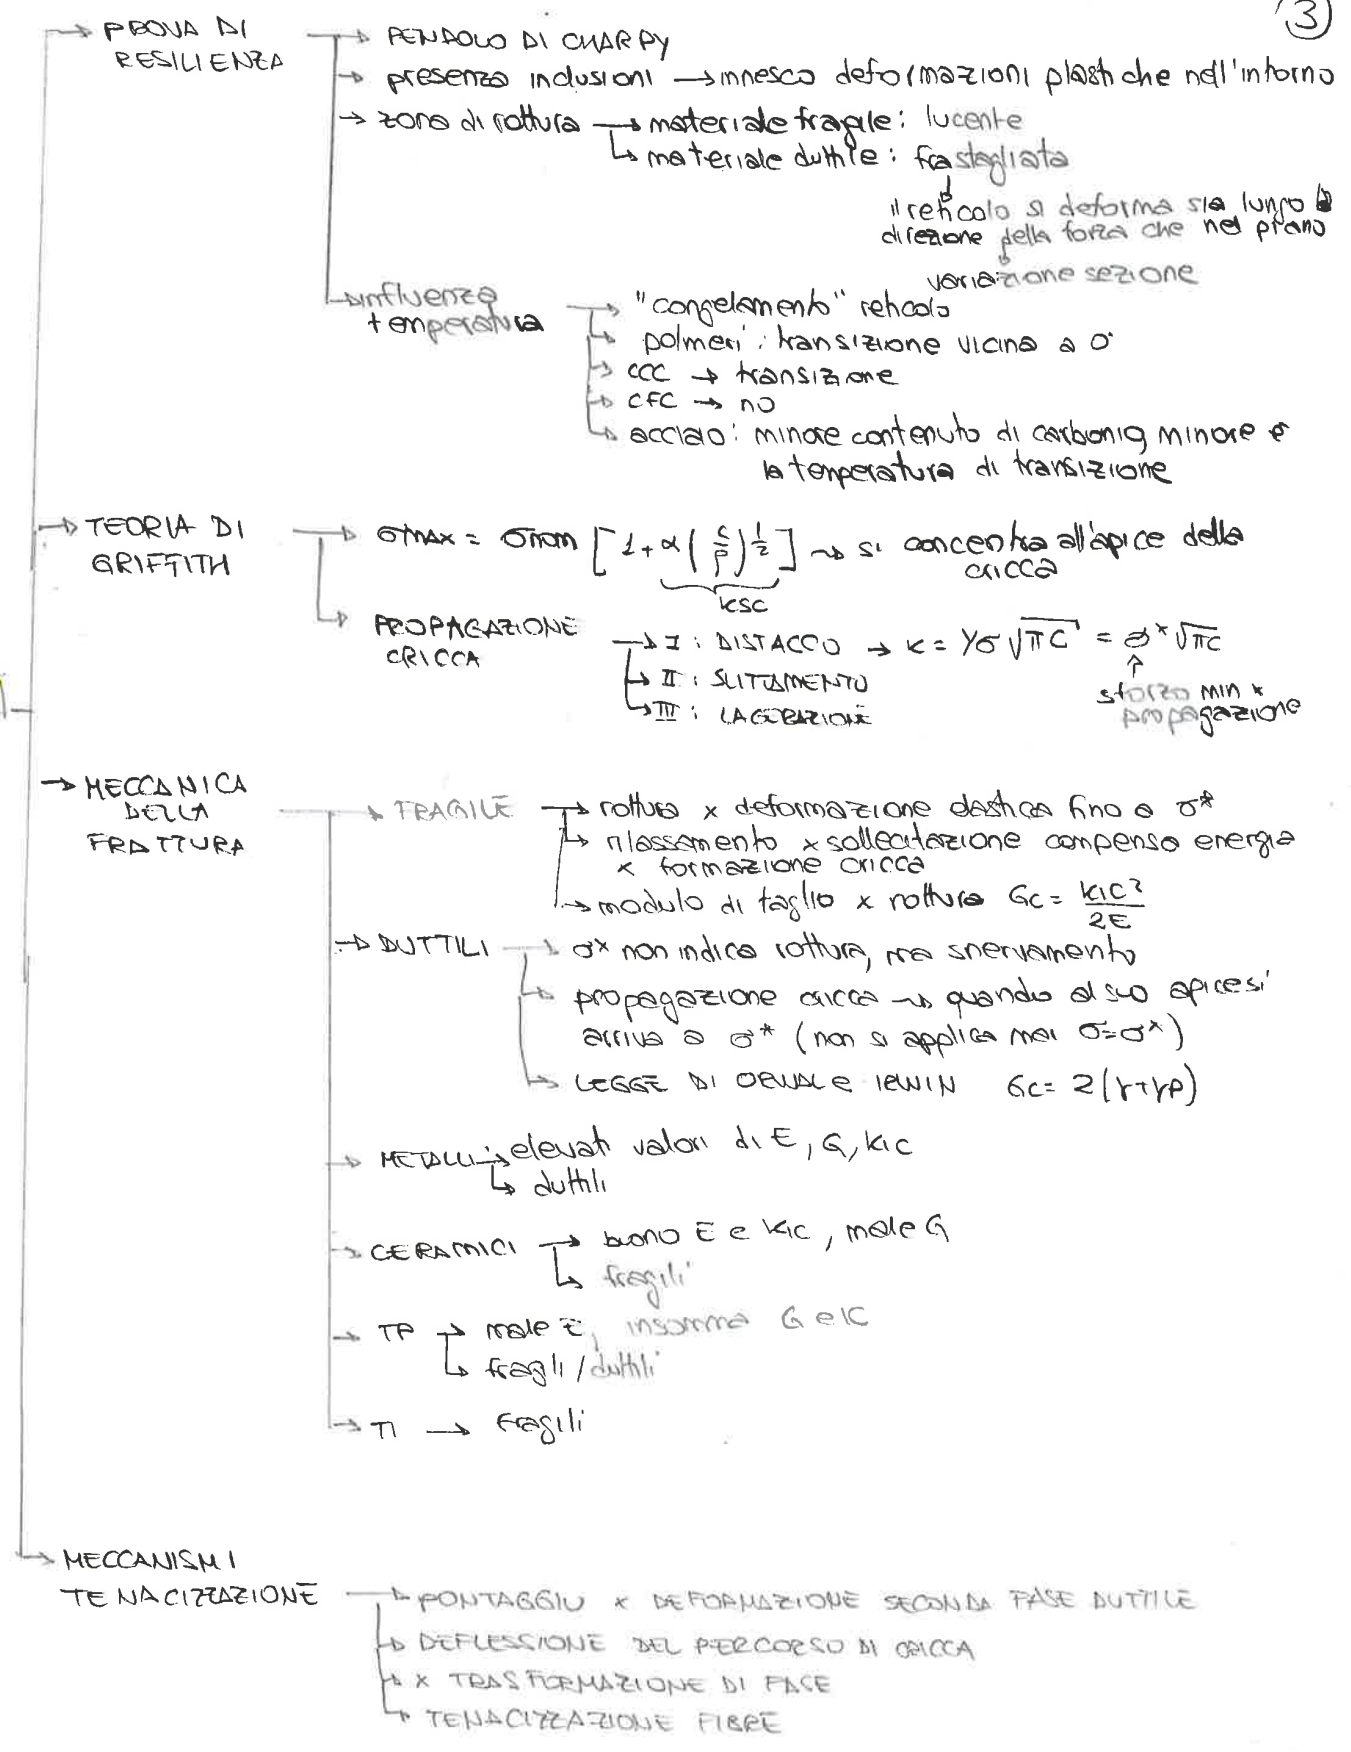 3
→ PROVA DI
RESILIENZA
→ PENDOLO DI CHARPY
→ presenza inclusioni → innesco deformazioni plastiche nell'intorno
→ zona di rottura → materiale fragile: lucente
↳ materiale duttile: frastagliata
il reticolo si deforma sia lungo la
direzione della forza che nel piano
variazione sezione
→ influenza
temperatura
→ "congelamento" reticolo
→ polimeri: transizione vicina a 0°
→ CCC → transizione
→ CFC → no
↳ acciaio: minore contenuto di carbonio, minore è
la temperatura di transizione
→ TEORIA DI
GRIFFITH
→ σmax = σnom [1 + α (c/ρ)^1/2] → si concentra all'apice della
cricca
ksc
→ PROPAGAZIONE
CRICCA
→ I : DISTACCO → K = Yσ√πC = σ*√πC
↳ II : SLITTAMENTO
↳ III : LACERAZIONE
↑
sforzo min x
propagazione
→ MECCANICA
DELLA
FRATTURA
→ FRAGILE → rottura x deformazione elastica fino a σ*
↳ rilassamento x sollecitazione compensa energia
x formazione cricca
→ modulo di taglio x rottura Gc = KIC²/2E
→ DUTTILI → σ* non indica rottura, ma snervamento
→ propagazione cricca → quando al suo apice si
arriva a σ* (non si applica mai σ=σ*)
→ LEGGE DI OROWAN e IRWIN Gc = 2(γ+γp)
→ METALLI → elevati valori di E, G, KIC
↳ duttili
→ CERAMICI → buono E e KIC, male G
↳ fragili
→ TP → male E, insomma G e IC
↳ fragili / duttili
→ TI → fragili
→ MECCANISMI
TENACIZZAZIONE
→ PONTAGGIO x DEFORMAZIONE SECONDA FASE DUTTILE
→ DEFLESSIONE DEL PERCORSO DI CRICCA
→ x TRASFORMAZIONE DI FASE
→ TENACIZZAZIONE FIBRE